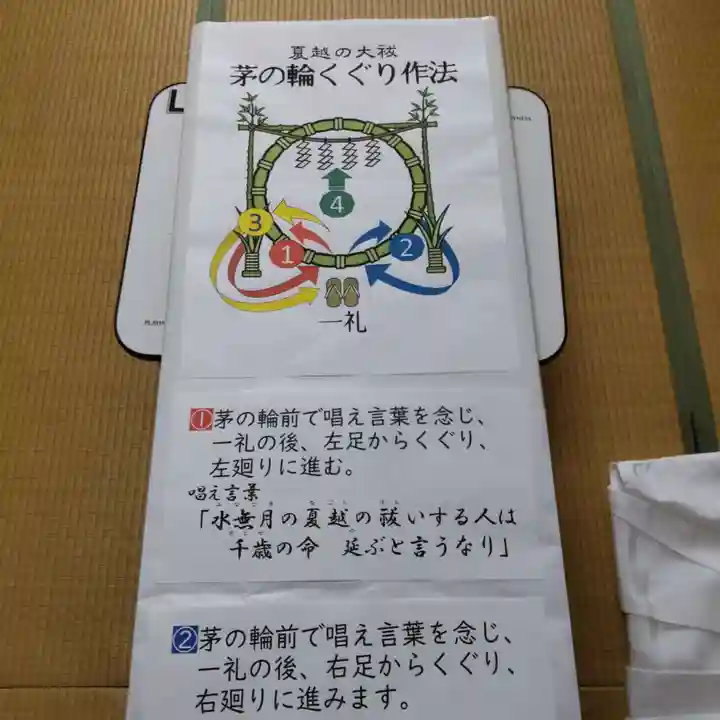 夏越の大祓
茅の輪くぐり作法
L
4
3
1
2
一礼
①茅の輪前で唱え言葉を念じ、
一礼の後、左足からくぐり、
左廻りに進む。
唱え言葉
「水無月の夏越の祓いする人は
千歳の命 延ぶと言うなり」
②茅の輪前で唱え言葉を念じ、
一礼の後、右足からくぐり、
右廻りに進みます。